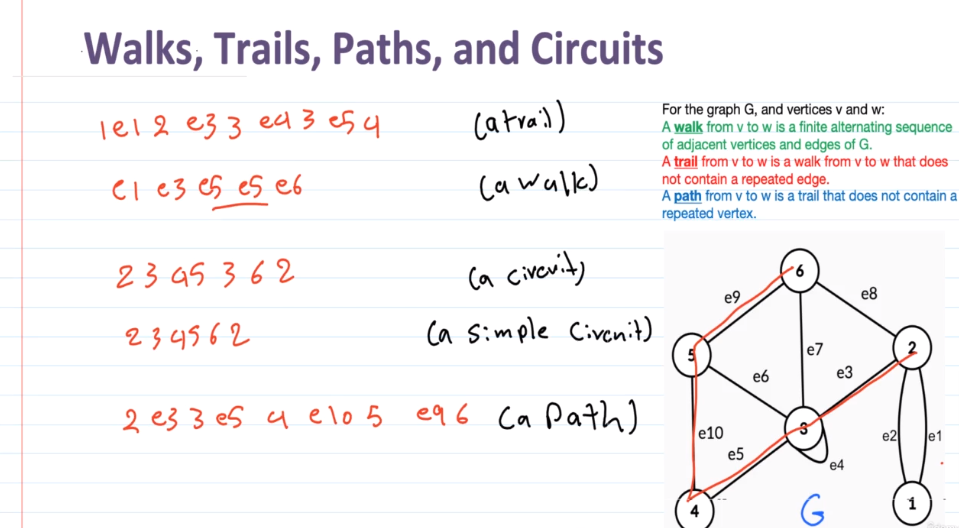 Walks, Trails, Paths, and Circuits
1 e1 2 e3 3 e4 3 e5 4 (a trail)
e1 e3 e5 e5 e6 (a walk)
2 3 4 5 3 6 2 (a circuit)
2 3 4 5 6 2 (a simple circuit)
2 e3 3 e5 4 e10 5 e9 6 (a Path)
For the graph G, and vertices v and w:
A walk from v to w is a finite alternating sequence
of adjacent vertices and edges of G.
A trail from v to w is a walk from v to w that does
not contain a repeated edge.
A path from v to w is a trail that does not contain a
repeated vertex.
6
e9 e8
5 e7 2
e6 e3
3
e10 e2 e1
e5 e4
4 G 1